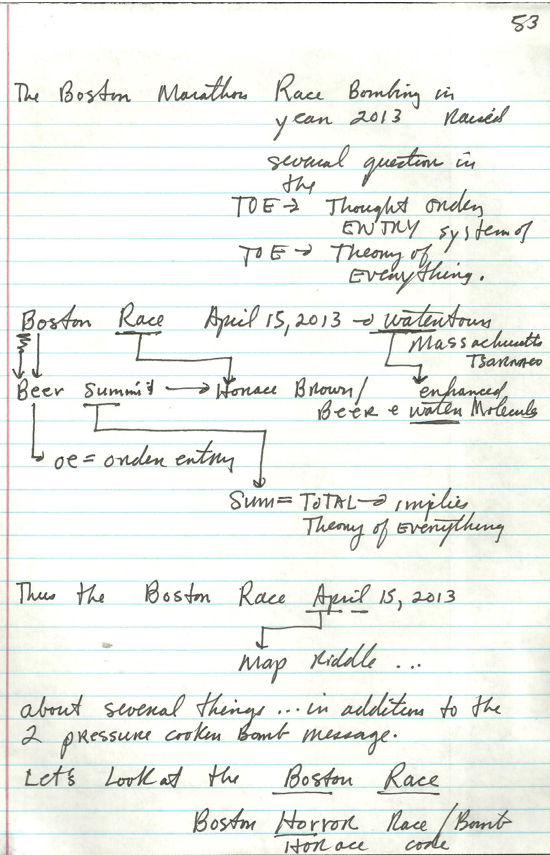 53
The Boston Marathon Race Bombing in
year 2013 Raised
several question in
the
TOE → Thought order
ENTRY system of
TOE → Theory of
Everything.
Boston Race April 15, 2013 → watertown
Massachusetts
TSARNAEO
Beer Summit → Horace Brown/ enhanced
Beer e water Molecule
oe = order entry
Sum = TOTAL → implies
Theory of Everything
Thus the Boston Race April 15, 2013
Map Riddle ...
about several things ... in addition to the
2 pressure cooker Bomb message.
Let's Look at the Boston Race
Boston Horror Race / Bomb
Horace code